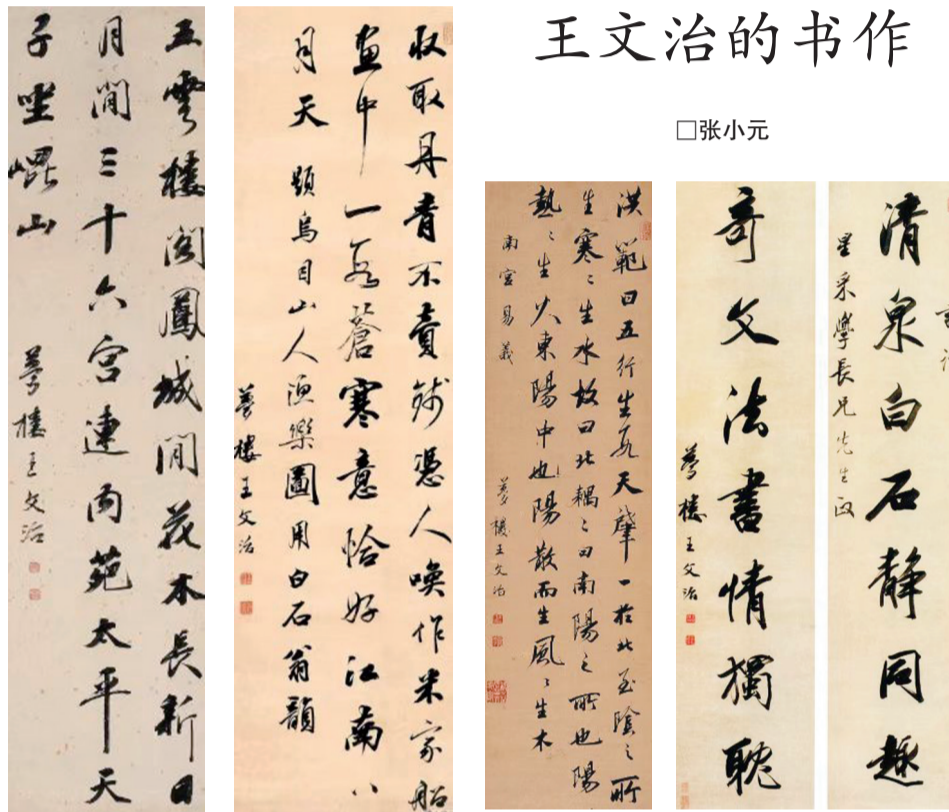 王文治的书作
□张小元
五雲樓閣鳳城間花木長新日
月閒三十六宮連内苑太平天
子坐崐山
夢樓王文治
收取丹青不賣錢憑人喚作米家船
畫中一段蒼寒意恰好江南八
月天 題烏目山人漁樂圖用白石翁韻
夢樓王文治
洪範曰五行生於天肇一於北至陰之所
生寒〻生水故曰北耦〻曰南陽之所也陽
熱〻生火東陽中也陽散而生風〻生木
南宮易義
夢樓王文治
清泉白石靜同趣
星采學長兄先生政
奇文法書情獨耽
夢樓王文治